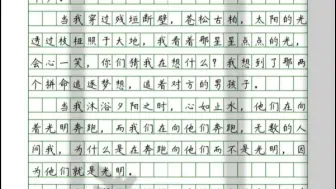 当我穿过残垣断壁，苍松古柏，太阳的光
透过枝桠照于大地，我看着那星星点点的光，
会心一笑，你们猜我在想什么？我想到了那两
个拼命追逐梦想，追着对方的男孩子。
当我沐浴夕阳之时，心如止水，他们在向
着光明奔跑，而我们在向他们奔跑，无数的人
问我，为什么是在奔跑向他们而不是光明，因
为他们就是光明。